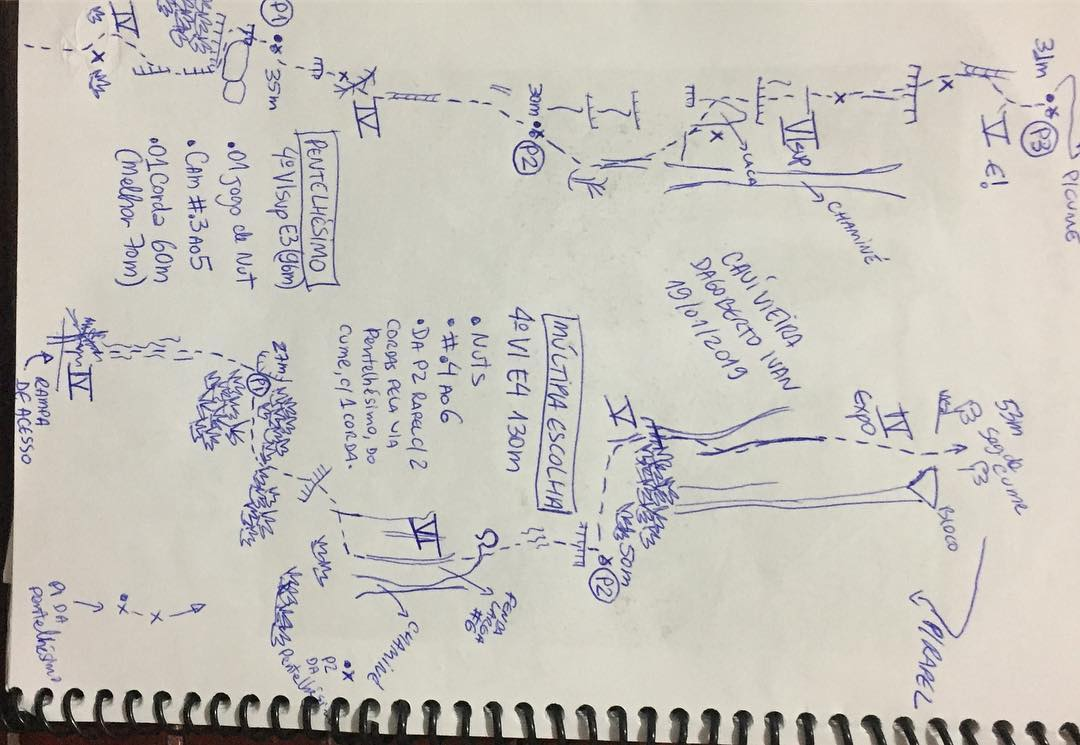 P1
35m
IV
IV
30m
P2
VI SUP
LACA
CHAMINÉ
31m
P3
V E!
P/CUME
PENTELHÉSIMO
4º VIsup E3 (96m)
•01 jogo de Nut
•CAM #.3 AO 5
•01 Corda 60m
(melhor 70m)
CAUÍ VIEIRA
DAGOBERTO IVAN
19/01/2019
MÚLTIPLA ESCOLHA
4º VI E4 130m
•NUTS
•#.4 AO 6
•DA P2 RAPEL C/2
CORDAS PELA VIA
Pentelhésimo, DO
CUME, C/ 1 CORDA.
IV
RAMPA
DE ACESSO
27m
P1
VI
FENDA
LARGA
#6
CHAMINÉ
P2
DA
P1 DA
Pentelhésimo
50m
P2
V
IV
EXPO
BLOCO
P/RAPEL